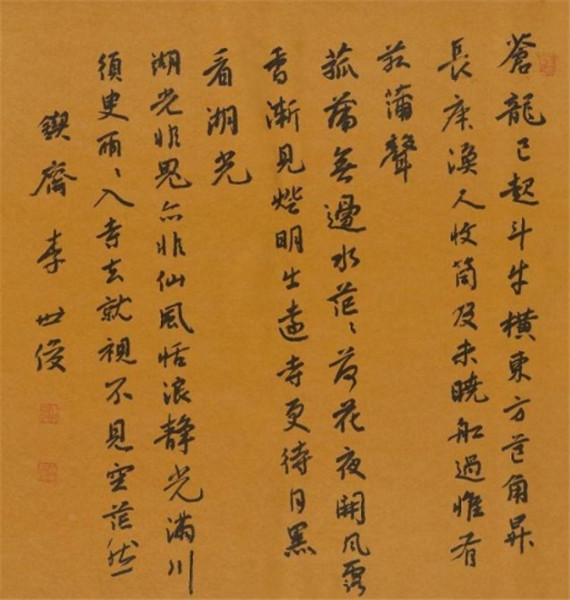 蒼龍已起斗牛橫東方芒角昇
長庚漁人收筒及未曉船過惟有
菰蒲聲
菰蒲無邊水茫々荷花夜開風露
香漸見燈明出遠寺更待月黑
看湖光
湖光非鬼亦非仙風恬浪靜光滿川
須臾兩々入寺去就視不見空茫然
鍥齋 李世俊